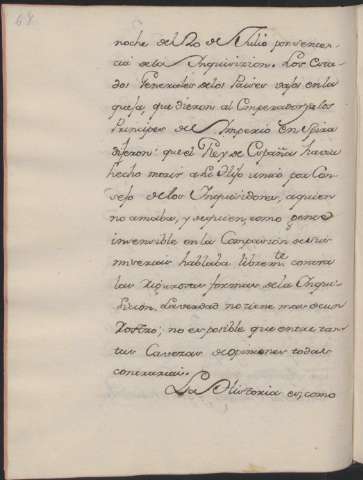 noche del 20 de Julio por senten-
cia de la Inquisizion. Los Esta-
dos Generales de los Paises vajos en la
quexa, que dieron al Emperador y a los
Principes del Imperio en Spira
dijeron: que el Rey de España havia
hecho morir a su Hijo unico por Con-
sejo de los Inquisidores, a quien
no amaba, y a quien, como
insensible en la Compasion de sus
miserias hablaba librem.te contra
las rigurosas formas de la Inqui-
sicion. La verdad no tiene mas de un
Rostro; no es posible que entre tan-
tas Cavezas de opiniones todas
contrarias.
La Historia es, como